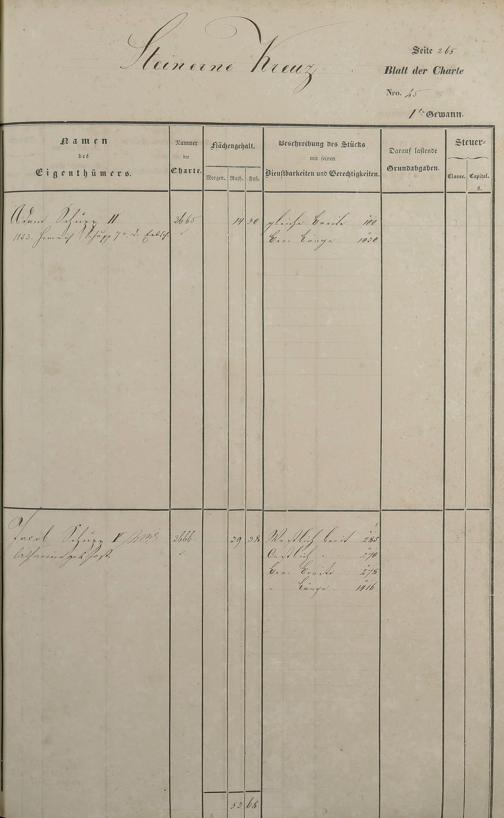 Steinerne Kreuz
Seite 265
Blatt der Charte
Nro. 45
1te Gewann.
Namen
des
Eigenthümers.
Nummer
der
Charte.
Flächengehalt.
Morgen. Rut. Fuß.
Beschreibung des Stücks
mit seinen
Dienstbarkeiten und Gerechtigkeiten.
Darauf lastende
Grundabgaben.
Steuer-
Classe. Capital.
fl.
Adam Schupp II 3665 14 30 gleiche Breite 100
Heinrich Schupp Länge 1430
Jacob Schupp V 3666 39 38 Westlich breit 285
Oestlich 270
Breite 278
Länge 1416
53 68